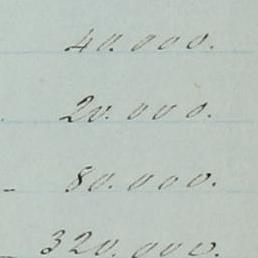 40.000.
20.000.
80.000.
320.000.